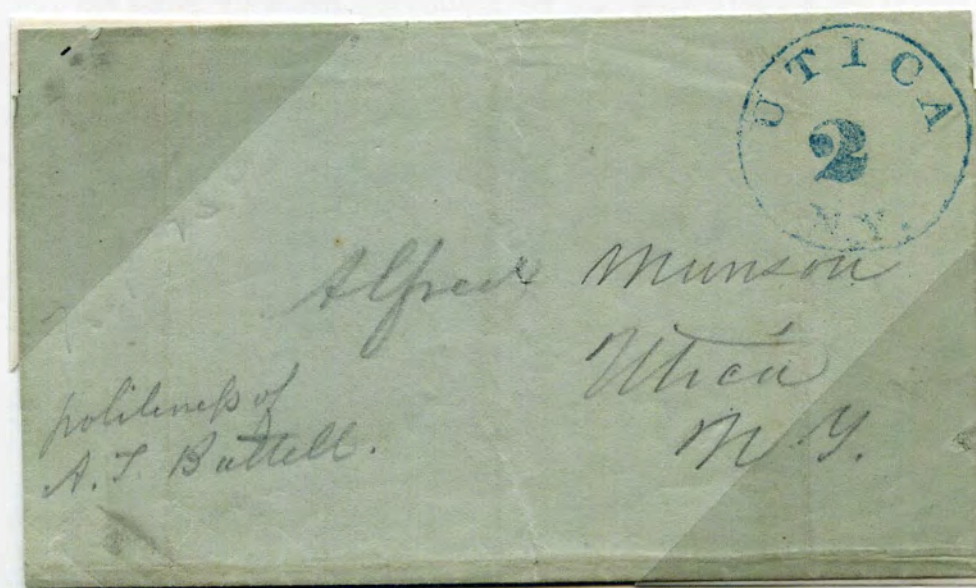 UTICA
2
N.Y.
Alfred Munson
Utica
N Y.
politeness of
A. T. Battell.